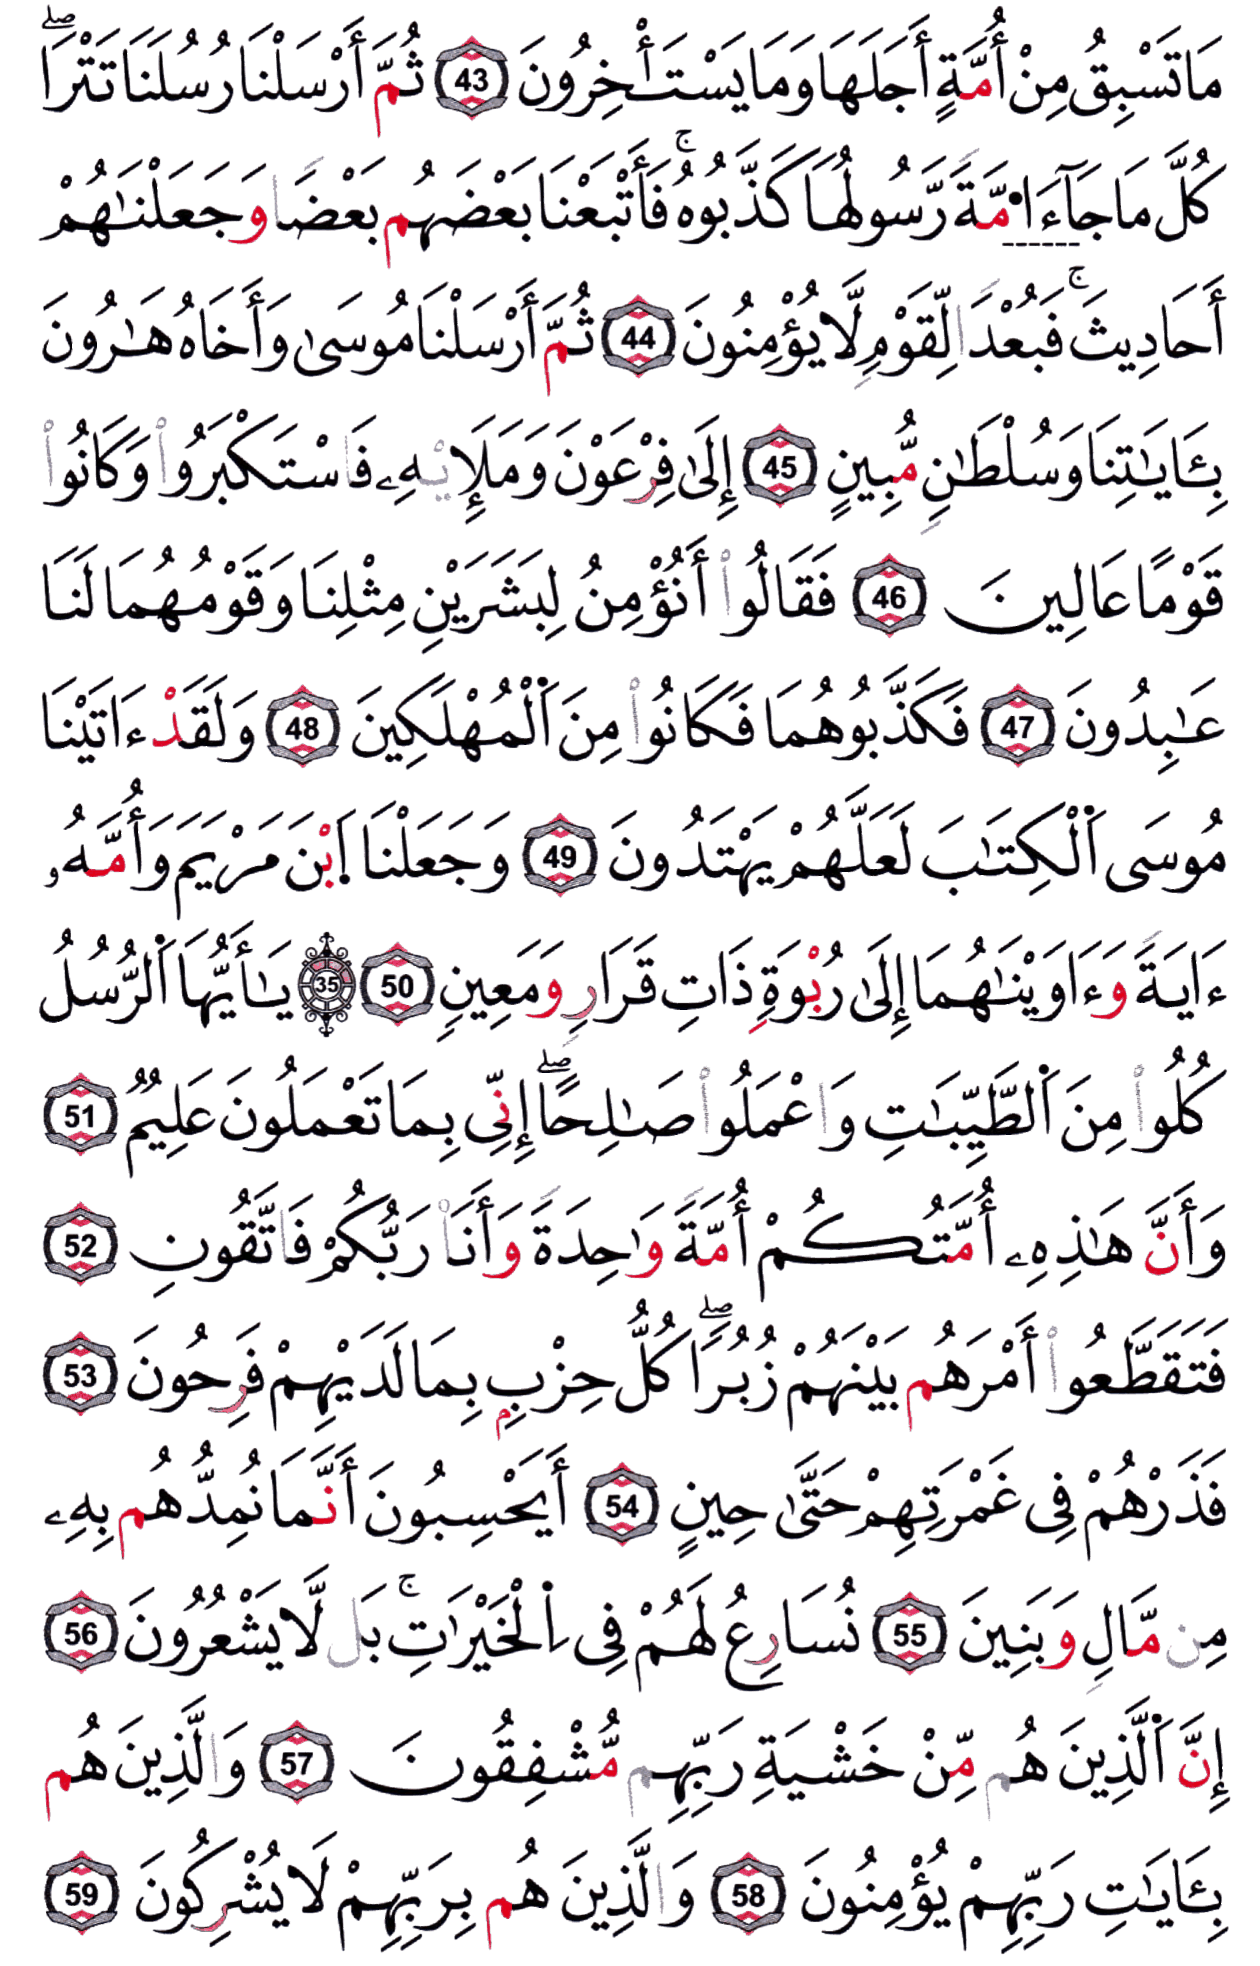 مَا تَسْبِقُ مِنْ أُمَّةٍ أَجَلَهَا وَمَا يَسْتَـْٔخِرُونَ 43 ثُمَّ أَرْسَلْنَا رُسُلَنَا تَتْرَاۖ
كُلَّ مَا جَآءَ ا۬مَّةَ رَّسُولُهَا كَذَّبُوهُۚ فَأَتْبَعْنَا بَعْضَهُم بَعْضًا وَجَعَلْنَٰهُمْ
أَحَادِيثَۚ فَبُعْدًا لِّقَوْمٍ لَّا يُؤْمِنُونَ 44 ثُمَّ أَرْسَلْنَا مُوسَىٰ وَأَخَاهُ هَٰرُونَ
بِـَٔايَٰتِنَا وَسُلْطَٰنٍ مُّبِينٍ 45 إِلَىٰ فِرْعَوْنَ وَمَلَإِيْهِۦ فَاسْتَكْبَرُوا۟ وَكَانُوا۟
قَوْمًا عَالِينَ 46 فَقَالُوا۟ أَنُؤْمِنُ لِبَشَرَيْنِ مِثْلِنَا وَقَوْمُهُمَا لَنَا
عَٰبِدُونَ 47 فَكَذَّبُوهُمَا فَكَانُوا۟ مِنَ اَ۬لْمُهْلَكِينَ 48 وَلَقَدْ ءَاتَيْنَا
مُوسَى اَ۬لْكِتَٰبَ لَعَلَّهُمْ يَهْتَدُونَ 49 وَجَعَلْنَا اَ۪بْنَ مَرْيَمَ وَأُمَّهُۥ
ءَايَةً وَءَاوَيْنَٰهُمَا إِلَىٰ رُبْوَةٍ ذَاتِ قَرَارٍ وَمَعِينٍ 50 35 يَٰأَيُّهَا اَ۬لرُّسُلُ
كُلُوا۟ مِنَ اَ۬لطَّيِّبَٰتِ وَاعْمَلُوا۟ صَٰلِحًاۖ إِنِّى بِمَا تَعْمَلُونَ عَلِيمٌ 51
وَأَنَّ هَٰذِهِۦ أُمَّتُكُمْ أُمَّةً وَٰحِدَةً وَأَنَا۠ رَبُّكُمْ فَاتَّقُونِ 52
فَتَقَطَّعُوا۟ أَمْرَهُم بَيْنَهُمْ زُبُرًاۖ كُلُّ حِزْبٍۭ بِمَا لَدَيْهِمْ فَرِحُونَ 53
فَذَرْهُمْ فِى غَمْرَتِهِمْ حَتَّىٰ حِينٍ 54 أَيَحْسِبُونَ أَنَّمَا نُمِدُّهُم بِهِۦ
مِن مَّالٍ وَبَنِينَ 55 نُسَارِعُ لَهُمْ فِى اِ۬لْخَيْرَٰتِۚ بَل لَّا يَشْعُرُونَ 56
إِنَّ اَ۬لَّذِينَ هُم مِّنْ خَشْيَةِ رَبِّهِم مُّشْفِقُونَ 57 وَالَّذِينَ هُم
بِـَٔايَٰتِ رَبِّهِمْ يُؤْمِنُونَ 58 وَالَّذِينَ هُم بِرَبِّهِمْ لَا يُشْرِكُونَ 59